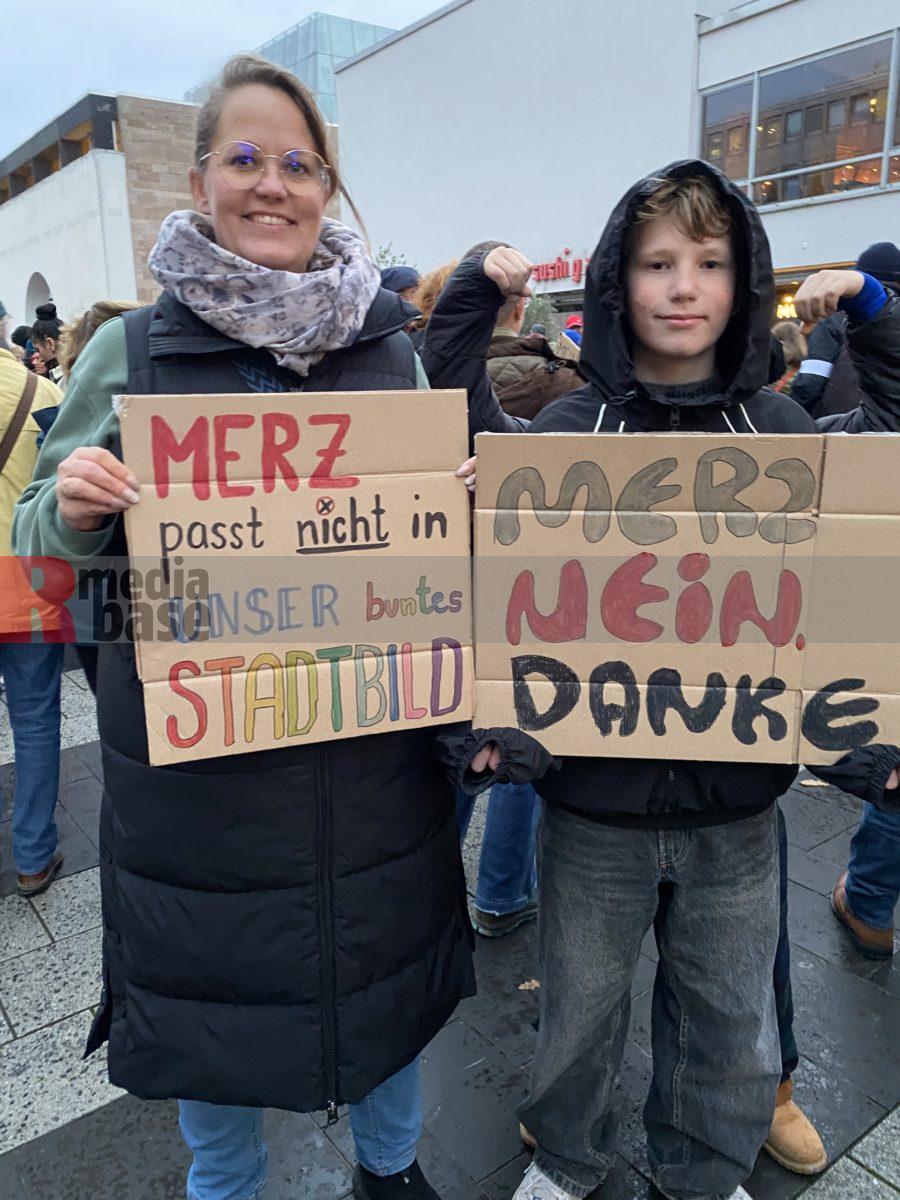 MERZ
passt nicht in
UNSER buntes
STADTBILD
MERZ
NEIN.
DANKE
sushi
R media
base